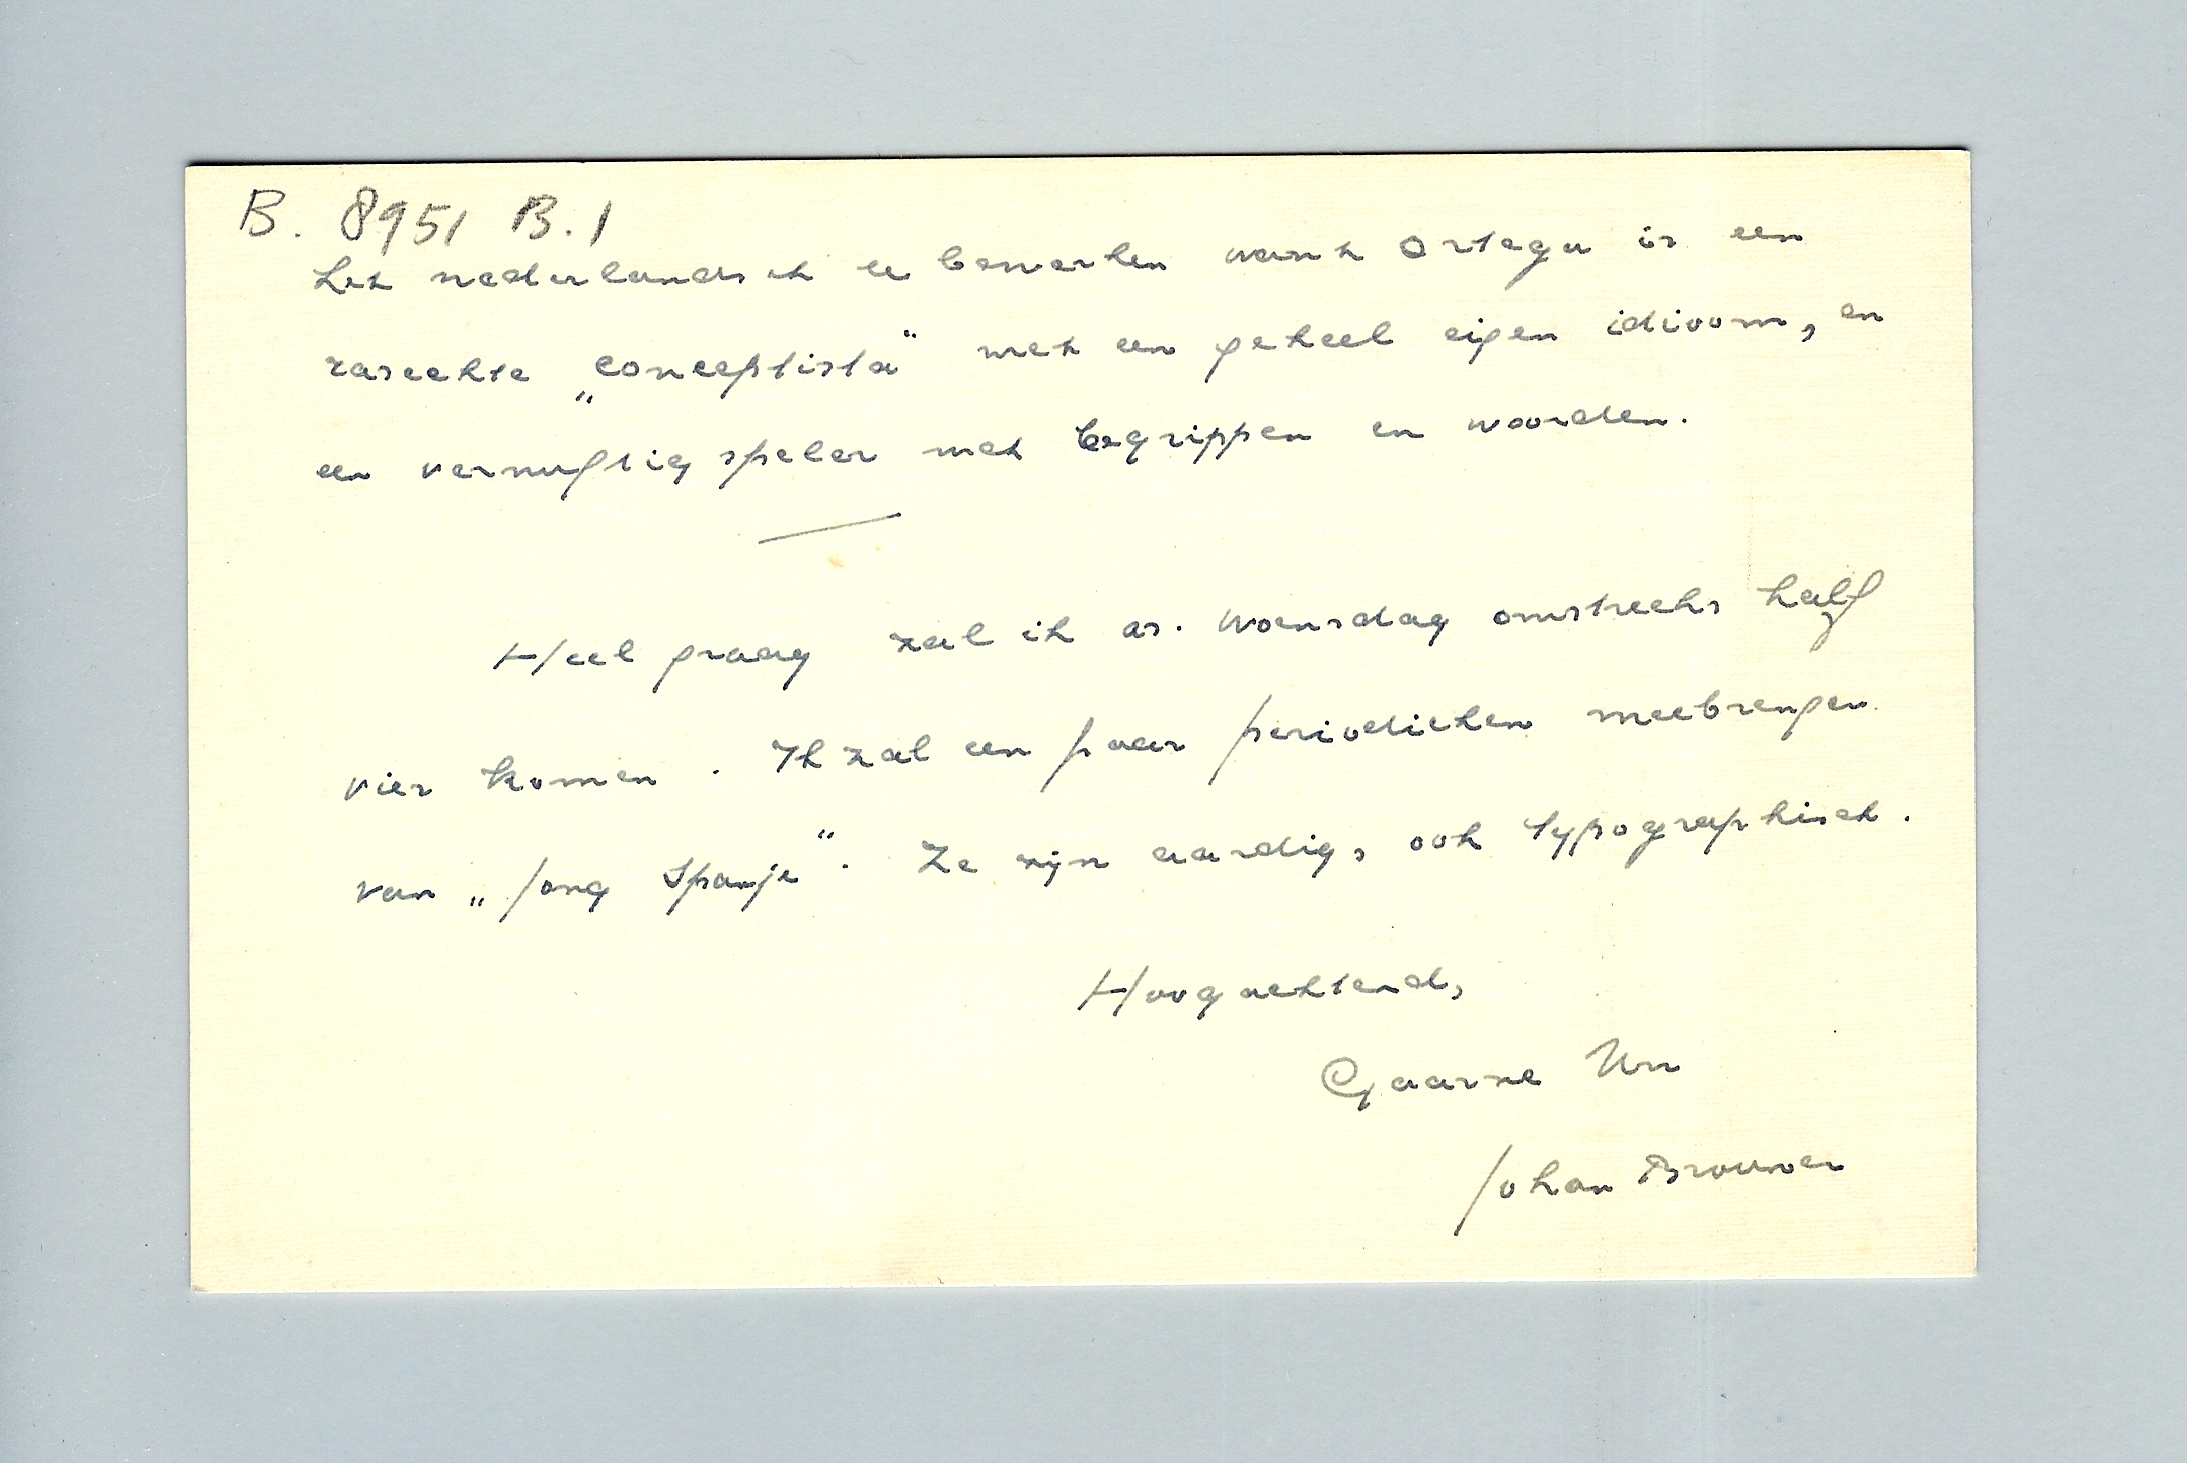 B. 8951 B.1
het nederlandsch te bewerken want Ortega is een
rasechte „conceptista” met een geheel eigen idioom, en
een vernuftig speler met begrippen en woorden.
Heel graag zal ik as. Woensdag omstreeks half
vier komen. Ik zal een paar periodieken meebrengen
van „Jong Spanje”. Ze zijn aardig, ook typographisch.
Hoogachtend,
Gaarne Uw
Johan Brouwer